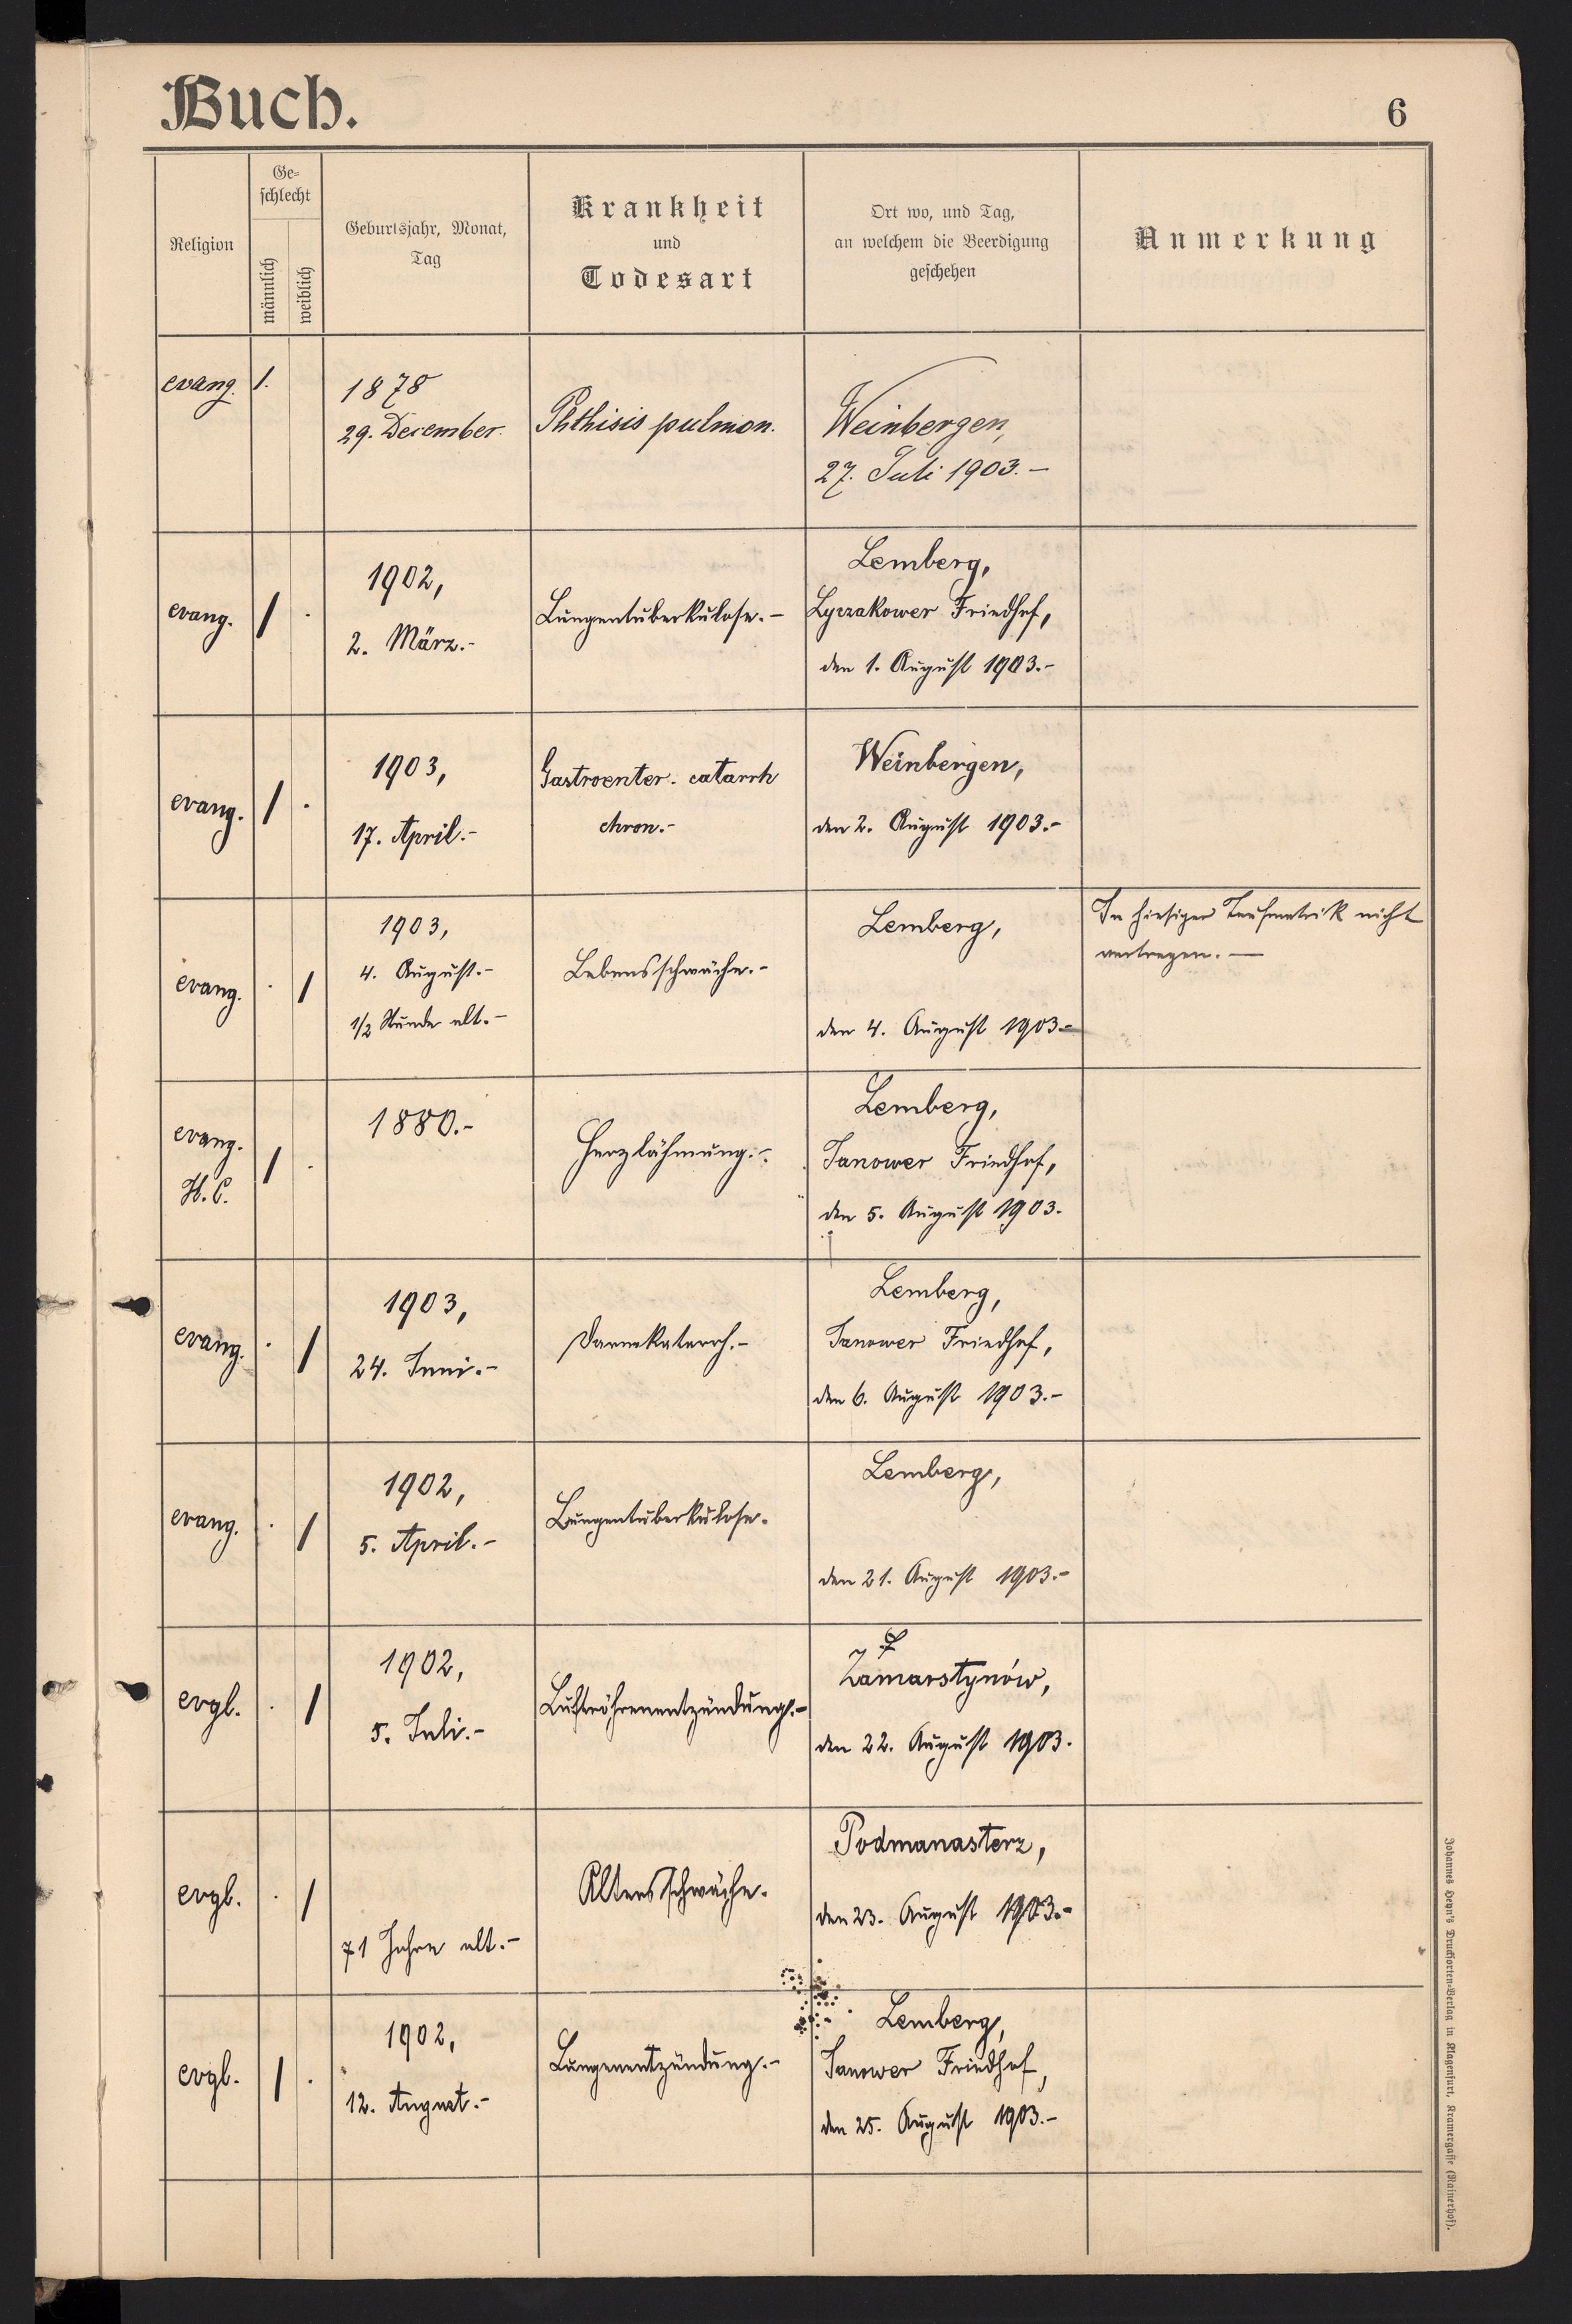 Buch.
6
Religion
Ge=
schlecht
männlich
weiblich
Geburtsjahr, Monat,
Tag
Krankheit
und
Todesart
Ort wo, und Tag,
an welchem die Beerdigung
geschehen
Anmerkung
evang. 1.
1878
29. December.
Phthisis pulmon.
Weinbergen,
27. Juli 1903.-
evang. 1 .
1902,
2. März.-
Lungentuberkulose.-
Lemberg,
Lyczakower Friedhof,
den 1. August 1903.-
evang. 1 .
1903,
17. April.-
Gastroenter. catarrh
chron.-
Weinbergen,
den 2. August 1903.-
evang. . 1
1903,
4. August.-
1/2 Stunde alt.-
Lebensschwäche.-
Lemberg,
den 4. August 1903.-
In hiesiger Taufmatrik nicht
evang.
H. C.
1 .
1880.-
Herzlähmung.-
Lemberg,
Janower Friedhof,
den 5. August 1903.
evang. . 1
1903,
24. Juni.-
Darmkatarrh.-
Lemberg,
Janower Friedhof,
den 6. August 1903.-
evang. . 1
1902,
5. April.-
Lungentuberkulose.
Lemberg,
den 21. August 1903.-
evgl. . 1
1902,
5. Juli.-
Luftröhrenentzündung.-
Zamarstynów,
den 22. August 1903.
evgl. . 1
71 Jahre alt.-
Altersschwäche.
Podmanasterz,
den 23. August 1903.-
evgl. 1 .
1902,
12. August.-
Lungenentzündung.-
Lemberg,
Janower Friedhof,
den 25. August 1903.-
Johannes Heyn's Drucksorten-Verlag in Klagenfurt, Kramergasse (Rainerhof).